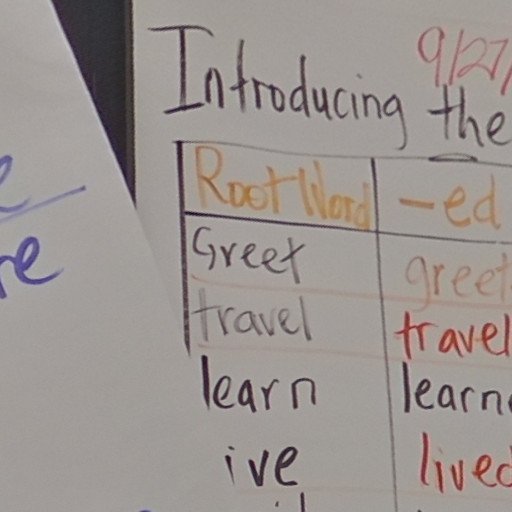 9/27/
Introducing the
Root Word -ed
Greet greet
travel travel
learn learn
ive lived
re